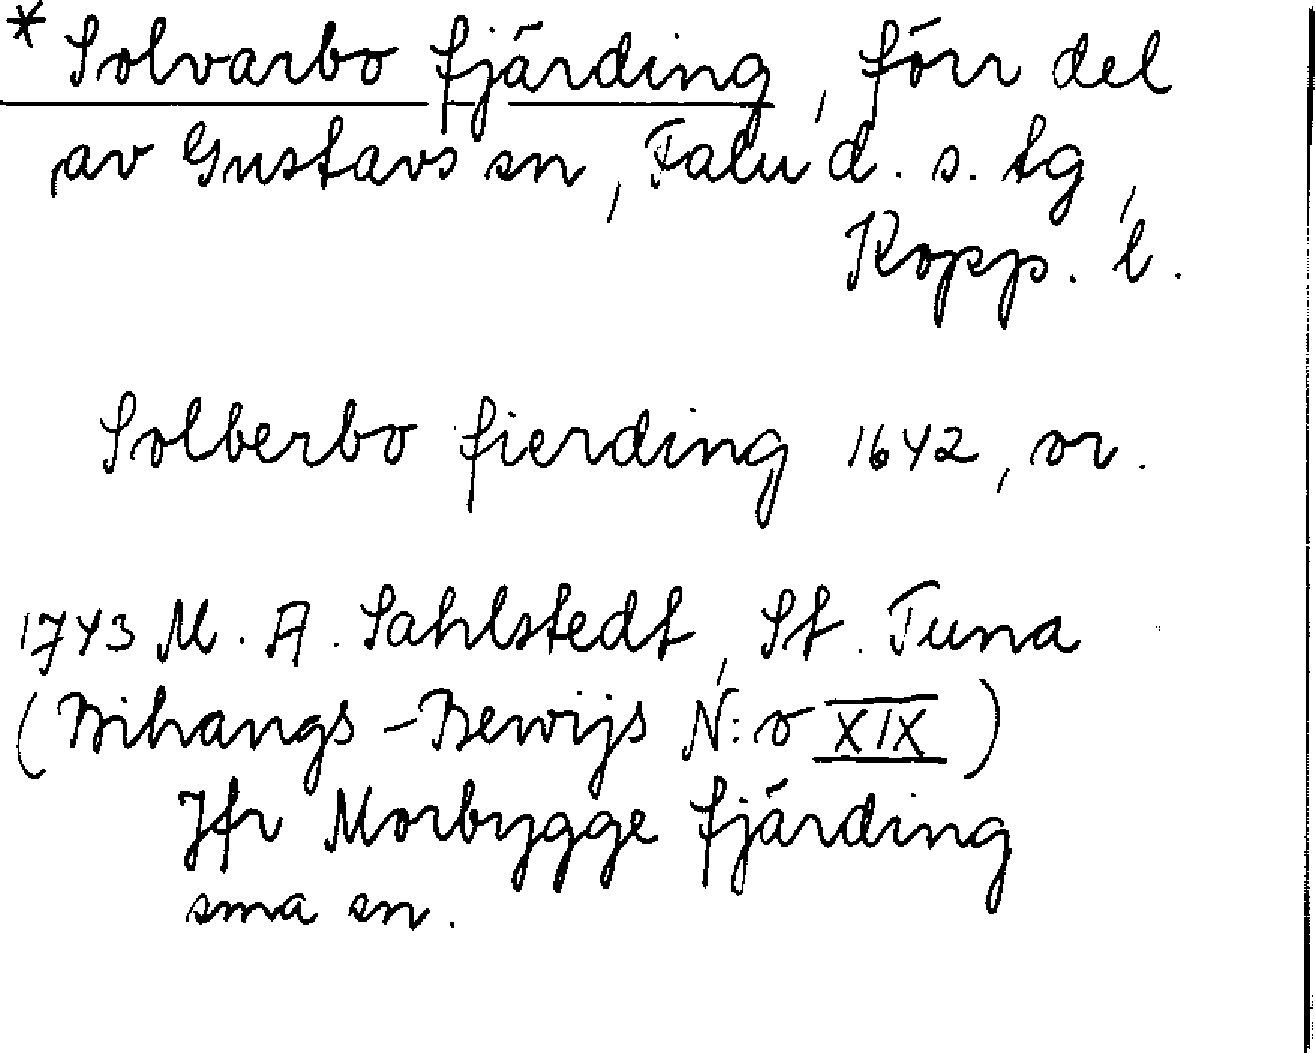 * Solvarbo fjärding, förr del
av Gustavs sn, Falu d. s. tg,
Kopp. l.
Solberbo fierding 1642, or.
1743 M. A. Sahlstedt, St. Tuna
(Bihangs-Bewijs N:o XIX)
Jfr Morbygge fjärding
sma sn.